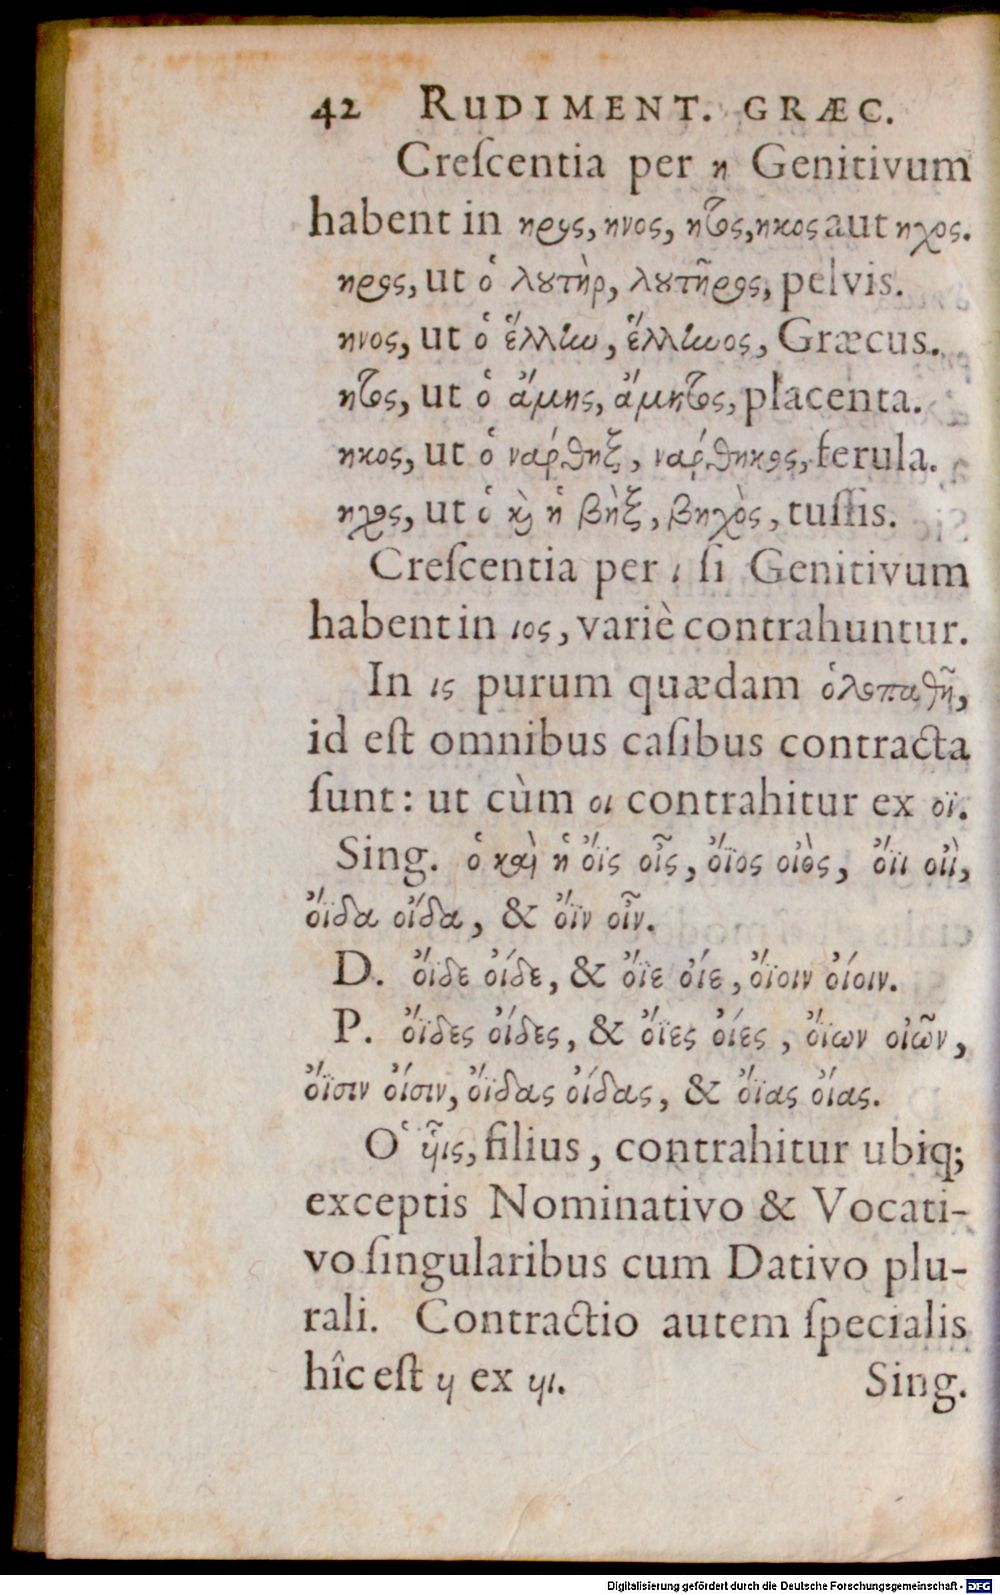 42 RUDIMENT. GRÆC.
Creſcentia per η Genitivum
habent in ηρος, ηνος, ητος, ηκος aut ηχος.
ηρος, ut ὁ λουτὴρ, λουτῆρος, pelvis.
ηνος, ut ὁ ἕλλην, ἕλληνος, Græcus.
ητος, ut ὁ ἄμης, ἄμητος, placenta.
ηκος, ut ὁ νάρθηξ, νάρθηκος, ferula.
ηχος, ut ὁ καὶ ἡ βὴξ, βηχὸς, tuſſis.
Creſcentia per ι ſi Genitivum
habent in ιος, variè contrahuntur.
In ις purum quædam ὁλοπαθῆ,
id eſt omnibus caſibus contracta
ſunt: ut cùm οι contrahitur ex οϊ.
Sing. ὁ καὶ ἡ ὄϊς οἶς, ὄϊος οἰὸς, ὄϊι οἰὶ,
ὄϊδα οἴδα, & ὄϊν οἶν.
D. ὄϊδε οἴδε, & ὄϊε οἴε, ὀΐοιν οἴοιν.
P. ὄϊδες οἴδες, & ὄϊες οἴες, ὀΐων οἰῶν,
ὄϊσιν οἴσιν, ὄϊδας οἴδας, & ὄϊας οἴας.
Ὁ υἷις, filius, contrahitur ubiq;
exceptis Nominativo & Vocati-
vo ſingularibus cum Dativo plu-
rali. Contractio autem ſpecialis
hîc eſt υι ex υιι.
Sing.
Digitalisierung gefördert durch die Deutsche Forschungsgemeinschaft - DFG